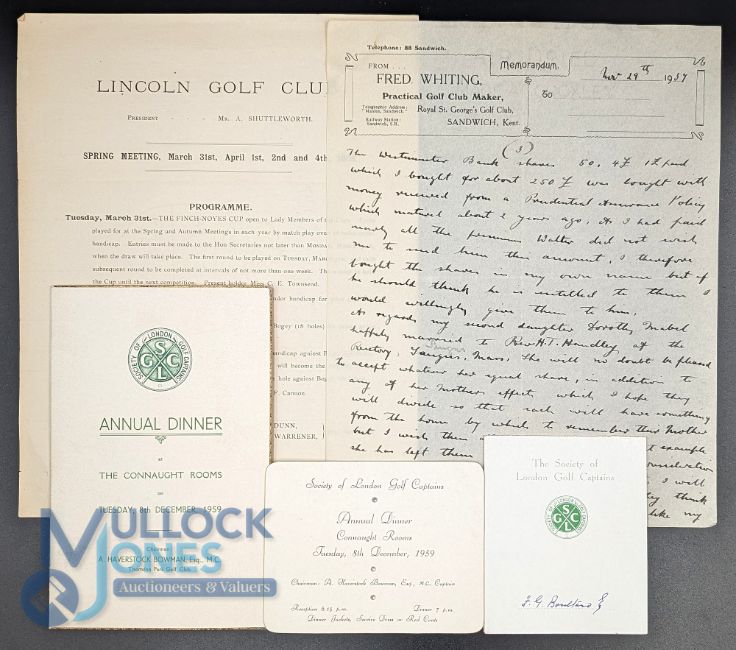 LINCOLN GOLF CLU
PRESIDENT MR. A. SHUTTLEWORTH.
SPRING MEETING, March 31st, April 1st, 2nd and 4th
PROGRAMME.
Tuesday, March 31st.—THE FINCH-NOYES CUP open to Lady Members of
played for at the Spring and Autumn Meetings in each year by match play
handicap. Entries must be made to the Hon Secretaries not later than
when the draw will take place. The first round to be played on TUESDAY,
subsequent round to be completed at intervals of not more than one week.
the Cup until the next competition. Present holder Miss C. E. Townsend.
under handicap for
Bogey (18 holes)
handicap against B
will become the
hole against Bog
F. Cannon
DUNN,
WARRENER,
Telephone: 88 Sandwich.
Memorandum.
FROM . . .
FRED. WHITING,
Practical Golf Club Maker,
Telegraphic Address:
Royal St. George's Golf Club,
SANDWICH, Kent.
Nov 29th 1937
To
(3)
The Westminster Bank shares 50, 4£ 1£ paid
which I bought for about 250£ was bought with
money received from a Prudential Assurance Policy
which matured about 2 years ago. As I had paid
nearly all the premiums Walter did not wish
me to send him this amount, I therefore
bought the shares in my own name but if
he should think he is entitled to them I
would willingly give them to him.
As regards my second daughter Dorothy Mabel
happily married to Rev. H.T. Handley at the
Rectory, Saugus, Mass. She will no doubt be pleased
to accept whatever her equal share, in addition to
any of her Mothers effects which I hope they
will divide so that each will have something
from the home by which to remember their Mother
but I wish them
example
she has left them
I will
they think
like my
SOCIETY OF LONDON GOLF CAPTAINS
SGCL
ANNUAL DINNER
at
THE CONNAUGHT ROOMS
on
TUESDAY, 8th DECEMBER, 1959
Chairman:
A. HAVERSTOCK BOWMAN, Esq., M.C.
MULLOCK
JONES
Auctioneers & Valuers
Society of London Golf Captains
Annual Dinner
Connaught Rooms
Tuesday, 8th December, 1959
Chairman: A. Haverstock Bowman, Esq., M.C. Captain
Reception 6.15 p.m. Dinner 7 p.m.
Dinner Jackets, Service Dress or Red Coats
The Society of
London Golf Captains
SGCL